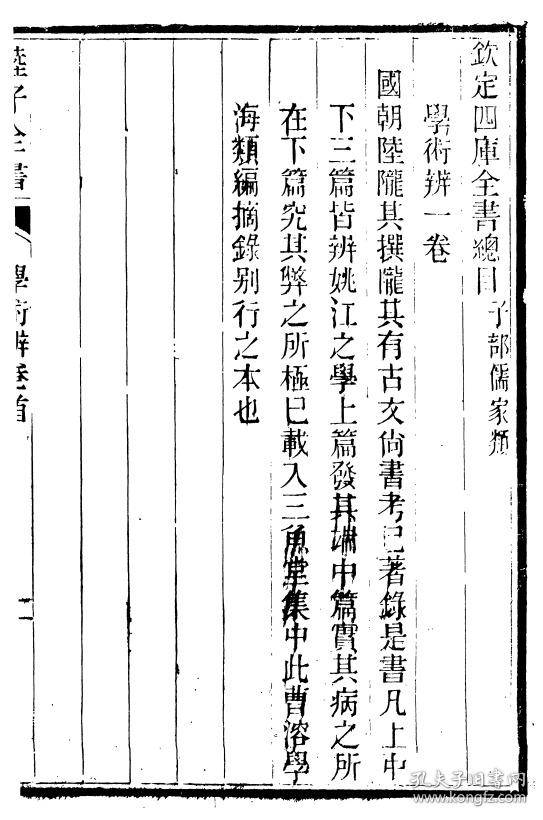 欽定四庫全書總目 子部儒家類
學術辨一卷
國朝陸隴其撰隴其有古文尙書考已著錄是書凡上中
下三篇皆辨姚江之學上篇發其端中篇實其病之所
在下篇究其弊之所極已載入三魚堂集中此曹溶學
海類編摘錄别行之本也
陸子全書
學術辨卷首
二
孔夫子旧书网
www.kongfz.com